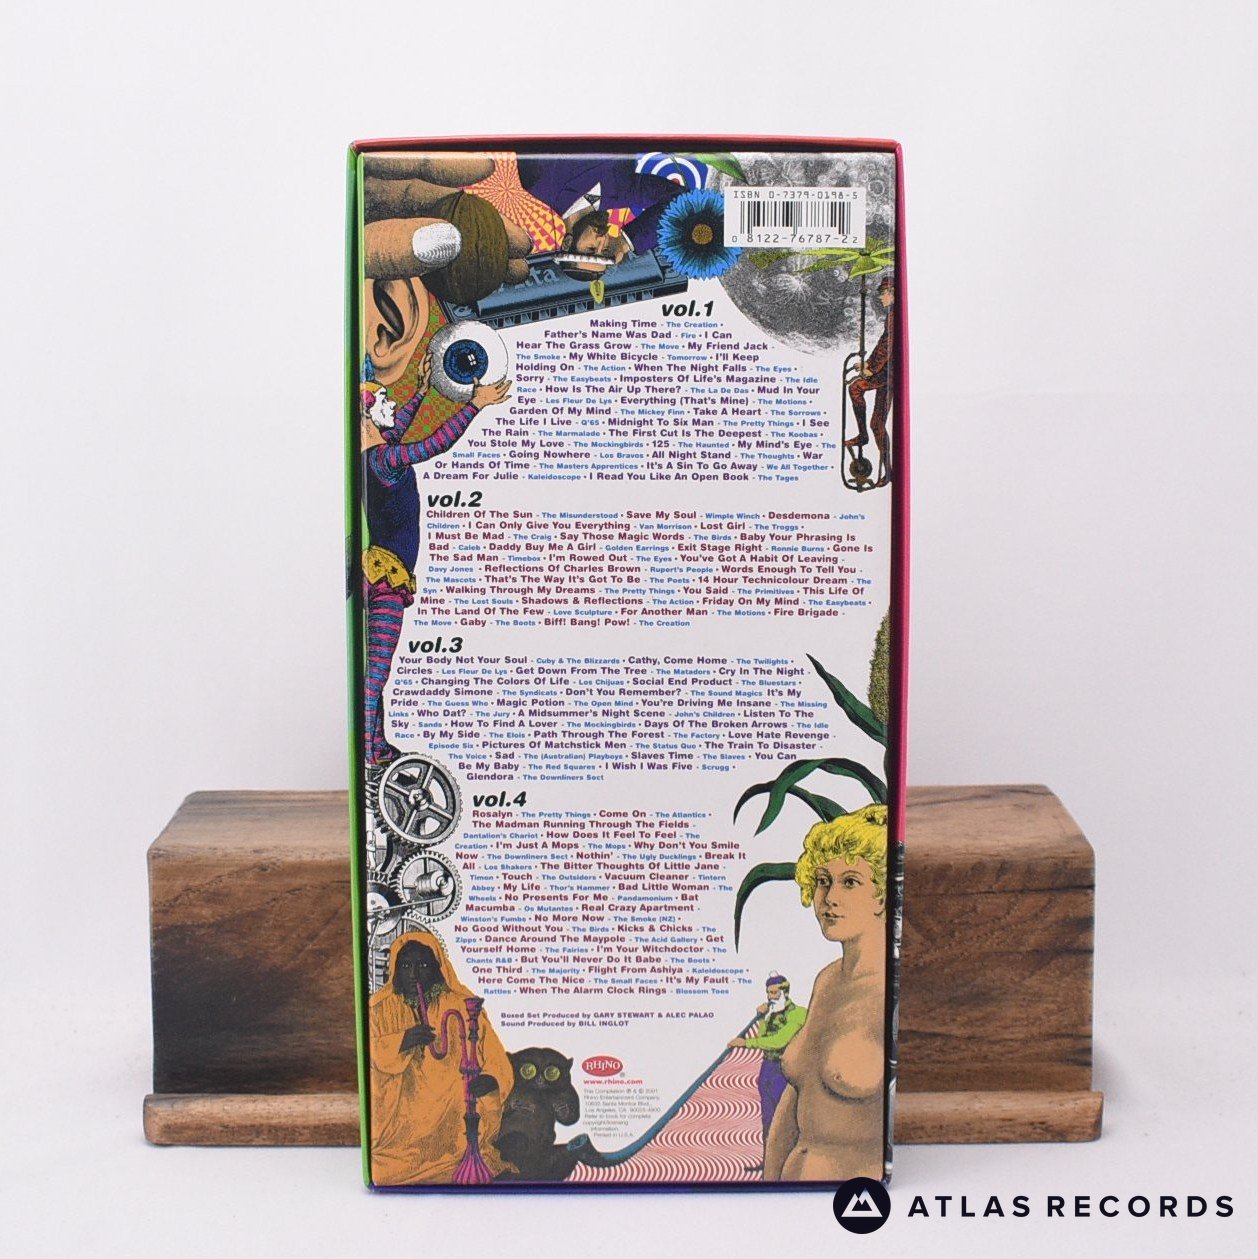 ISBN 0-7379-0198-5
0 8122-76787-2 2
vol.1
Making Time - The Creation •
Father's Name Was Dad - Fire • I Can
Hear The Grass Grow - The Move • My Friend Jack -
The Smoke • My White Bicycle - Tomorrow • I'll Keep
Holding On - The Action • When The Night Falls - The Eyes •
Sorry - The Easybeats • Imposters Of Life's Magazine - The Idle
Race • How Is The Air Up There? - The La De Das • Mud In Your
Eye - Les Fleur De Lys • Everything (That's Mine) - The Motions •
Garden Of My Mind - The Mickey Finn • Take A Heart - The Sorrows •
The Life I Live - Q'65 • Midnight To Six Man - The Pretty Things • I See
The Rain - The Marmalade • The First Cut Is The Deepest - The Koobas •
You Stole My Love - The Mockingbirds • 125 - The Haunted • My Mind's Eye - The
Small Faces • Going Nowhere - Los Bravos • All Night Stand - The Thoughts • War
Or Hands Of Time - The Masters Apprentices • It's A Sin To Go Away - We All Together •
A Dream For Julie - Kaleidoscope • I Read You Like An Open Book - The Tages
vol.2
Children Of The Sun - The Misunderstood • Save My Soul - Wimple Winch • Desdemona - John's
Children • I Can Only Give You Everything - Van Morrison • Lost Girl - The Troggs •
I Must Be Mad - The Craig • Say Those Magic Words - The Birds • Baby Your Phrasing Is
Bad - Caleb • Daddy Buy Me A Girl - Golden Earrings • Exit Stage Right - Ronnie Burns • Gone Is
The Sad Man - Timebox • I'm Rowed Out - The Eyes • You've Got A Habit Of Leaving -
Davy Jones • Reflections Of Charles Brown - Rupert's People • Words Enough To Tell You -
The Mascots • That's The Way It's Got To Be - The Poets • 14 Hour Technicolour Dream - The
Syn • Walking Through My Dreams - The Pretty Things • You Said - The Primitives • This Life Of
Mine - The Lost Souls • Shadows & Reflections - The Action • Friday On My Mind - The Easybeats •
In The Land Of The Few - Love Sculpture • For Another Man - The Motions • Fire Brigade -
The Move • Gaby - The Boots • Biff! Bang! Pow! - The Creation
vol.3
Your Body Not Your Soul - Cuby & The Blizzards • Cathy, Come Home - The Twilights •
Circles - Les Fleur De Lys • Get Down From The Tree - The Matadors • Cry In The Night -
Q'65 • Changing The Colors Of Life - Los Chijuas • Social End Product - The Bluestars •
Crawdaddy Simone - The Syndicats • Don't You Remember? - The Sound Magics It's My
Pride - The Guess Who • Magic Potion - The Open Mind • You're Driving Me Insane - The Missing
Links • Who Dat? - The Jury • A Midsummer's Night Scene - John's Children • Listen To The
Sky - Sands • How To Find A Lover - The Mockingbirds • Days Of The Broken Arrows - The Idle
Race • By My Side - The Elois • Path Through The Forest - The Factory • Love Hate Revenge -
Episode Six • Pictures Of Matchstick Men - The Status Quo • The Train To Disaster -
The Voice • Sad - The (Australian) Playboys • Slaves Time - The Slaves • You Can
Be My Baby - The Red Squares • I Wish I Was Five - Scrugg •
Glendora - The Downliners Sect
vol.4
Rosalyn - The Pretty Things • Come On - The Atlantics •
The Madman Running Through The Fields -
Dantalion's Chariot • How Does It Feel To Feel - The
Creation • I'm Just A Mops - The Mops • Why Don't You Smile
Now - The Downliners Sect • Nothin' - The Ugly Ducklings • Break It
All - Los Shakers • The Bitter Thoughts Of Little Jane -
Timon • Touch - The Outsiders • Vacuum Cleaner - Tintern
Abbey • My Life - Thor's Hammer • Bad Little Woman - The
Wheels • No Presents For Me - Pandamonium • Bat
Macumba - Os Mutantes • Real Crazy Apartment -
Winston's Fumbs • No More Now - The Smoke (NZ) •
No Good Without You - The Birds • Kicks & Chicks - The
Zipps • Dance Around The Maypole - The Acid Gallery • Get
Yourself Home - The Fairies • I'm Your Witchdoctor - The
Chants R&B • But You'll Never Do It Babe - The Boots •
One Third - The Majority • Flight From Ashiya - Kaleidoscope •
Here Come The Nice - The Small Faces • It's My Fault - The
Rattles • When The Alarm Clock Rings - Blossom Toes
Boxed Set Produced by GARY STEWART & ALEC PALAO
Sound Produced by BILL INGLOT
RHINO
www.rhino.com
This Compilation ℗ & © 2001
Rhino Entertainment Company,
10635 Santa Monica Blvd.,
Los Angeles, CA 90025-4900.
Refer to book for complete
copyright/licensing
information.
Printed in U.S.A.
ATLAS RECORDS